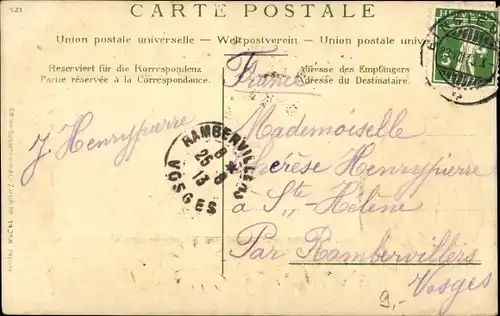 121
CARTE POSTALE
Union postale universelle — Weltpostverein — Union postale
Reserviert für die Korrespondenz
Partie réservée à la Correspondance.
Adresse des Empfängers
Adresse du Destinataire.
HELVETIA
5
France
J. Henrypierre
RAMBERVILLERS
8
25 - 8
13
VOSGES
Mademoiselle
Thérèse Henrypierre
à Ste Hélène
Par Rambervillers
Vosges
9,-